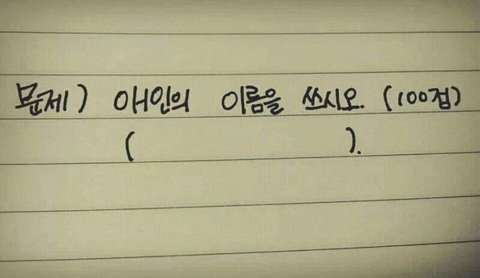 문제) 애인의 이름을 쓰시오. (100점)
( ).